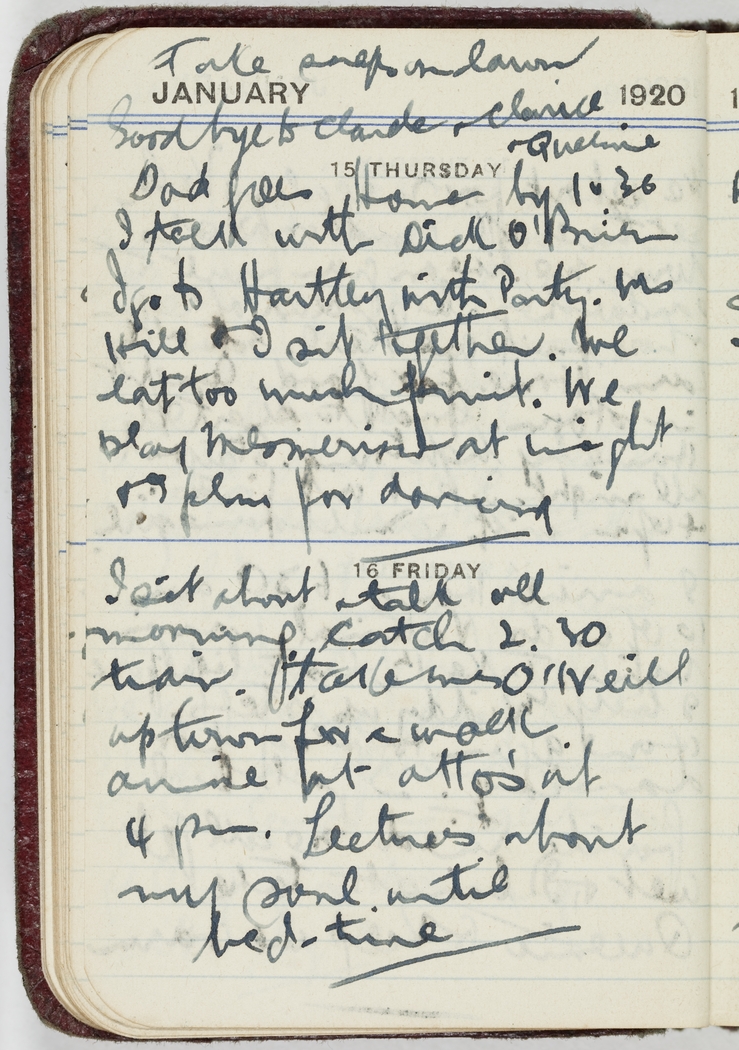 Take snaps on lawn
JANUARY 1920
Goodbye to Claude & Clarice
& Queenie
15 THURSDAY
Dad goes Home by 10 30
I talk with Dick O'Brien
I go to Hartley with Party. Mrs
Hill & I sit together. We
eat too much fruit. We
play Mesmerism at night
for dancing
16 FRIDAY
I sit about & talk all
morning. Catch 2.30
train. I take Mrs O'Neill
up town for a walk
arrive at Otto's at
4 pm. Lectures about
my soul until
bed-time